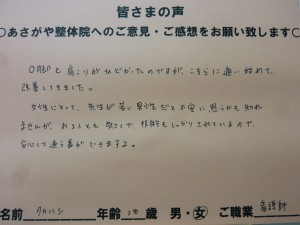 皆さまの声
○あさがや整体院へのご意見・ご感想をお願い致します○
O脚と肩こりがひどかったのですが、こちらに通い始めて、
改善してきました。
女性にとって、先生が若い男性だと不安に思うかも知れ
ませんが、お2人とも気さくで、技術もしっかりされているので、
安心して通う事ができますよ。
名前 タカハシ 年齢 28 歳 男・女 ご職業 看護師